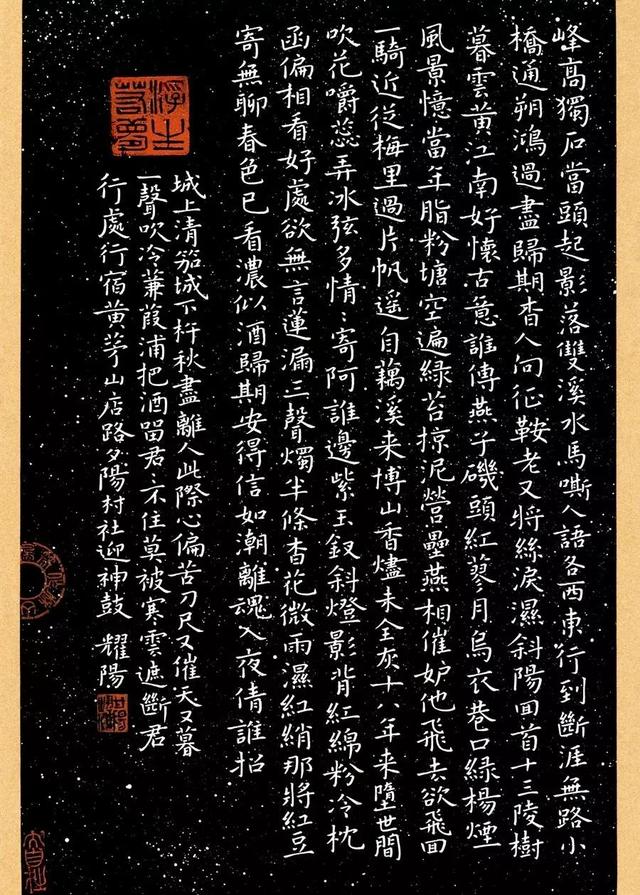 峰高獨石當頭起影落雙溪水馬嘶人語各西東行到斷涯無路小
橋通朔鴻過盡歸期杳人向征鞍老又將絲淚濕斜陽回首十三陵樹
暮雲黃江南好懷古意誰傳燕子磯頭紅蓼月烏衣巷口綠楊煙
風景憶當年脂粉塘空遍綠苔掠泥營壘燕相催妒他飛去欲飛回
一騎近從梅里過片帆遙自藕溪来博山香燼未全灰十八年來墮世間
吹花嚼蕊弄冰弦多情〻寄阿誰邊紫玉釵斜燈影背紅綿粉冷枕
函偏相看好處欲無言蓮漏三聲燭半條杏花微雨濕紅綃那將紅豆
寄無聊春色已看濃似酒歸期安得信如潮離魂入夜倩誰招
浮生若夢
城上清笳城下杵秋盡離人此際心偏苦刀尺又催天又暮
一聲吹冷蒹葭浦把酒留君〻不住莫被寒雲遮斷君
行處行宿黃茅山店路夕陽村社迎神鼓 耀陽